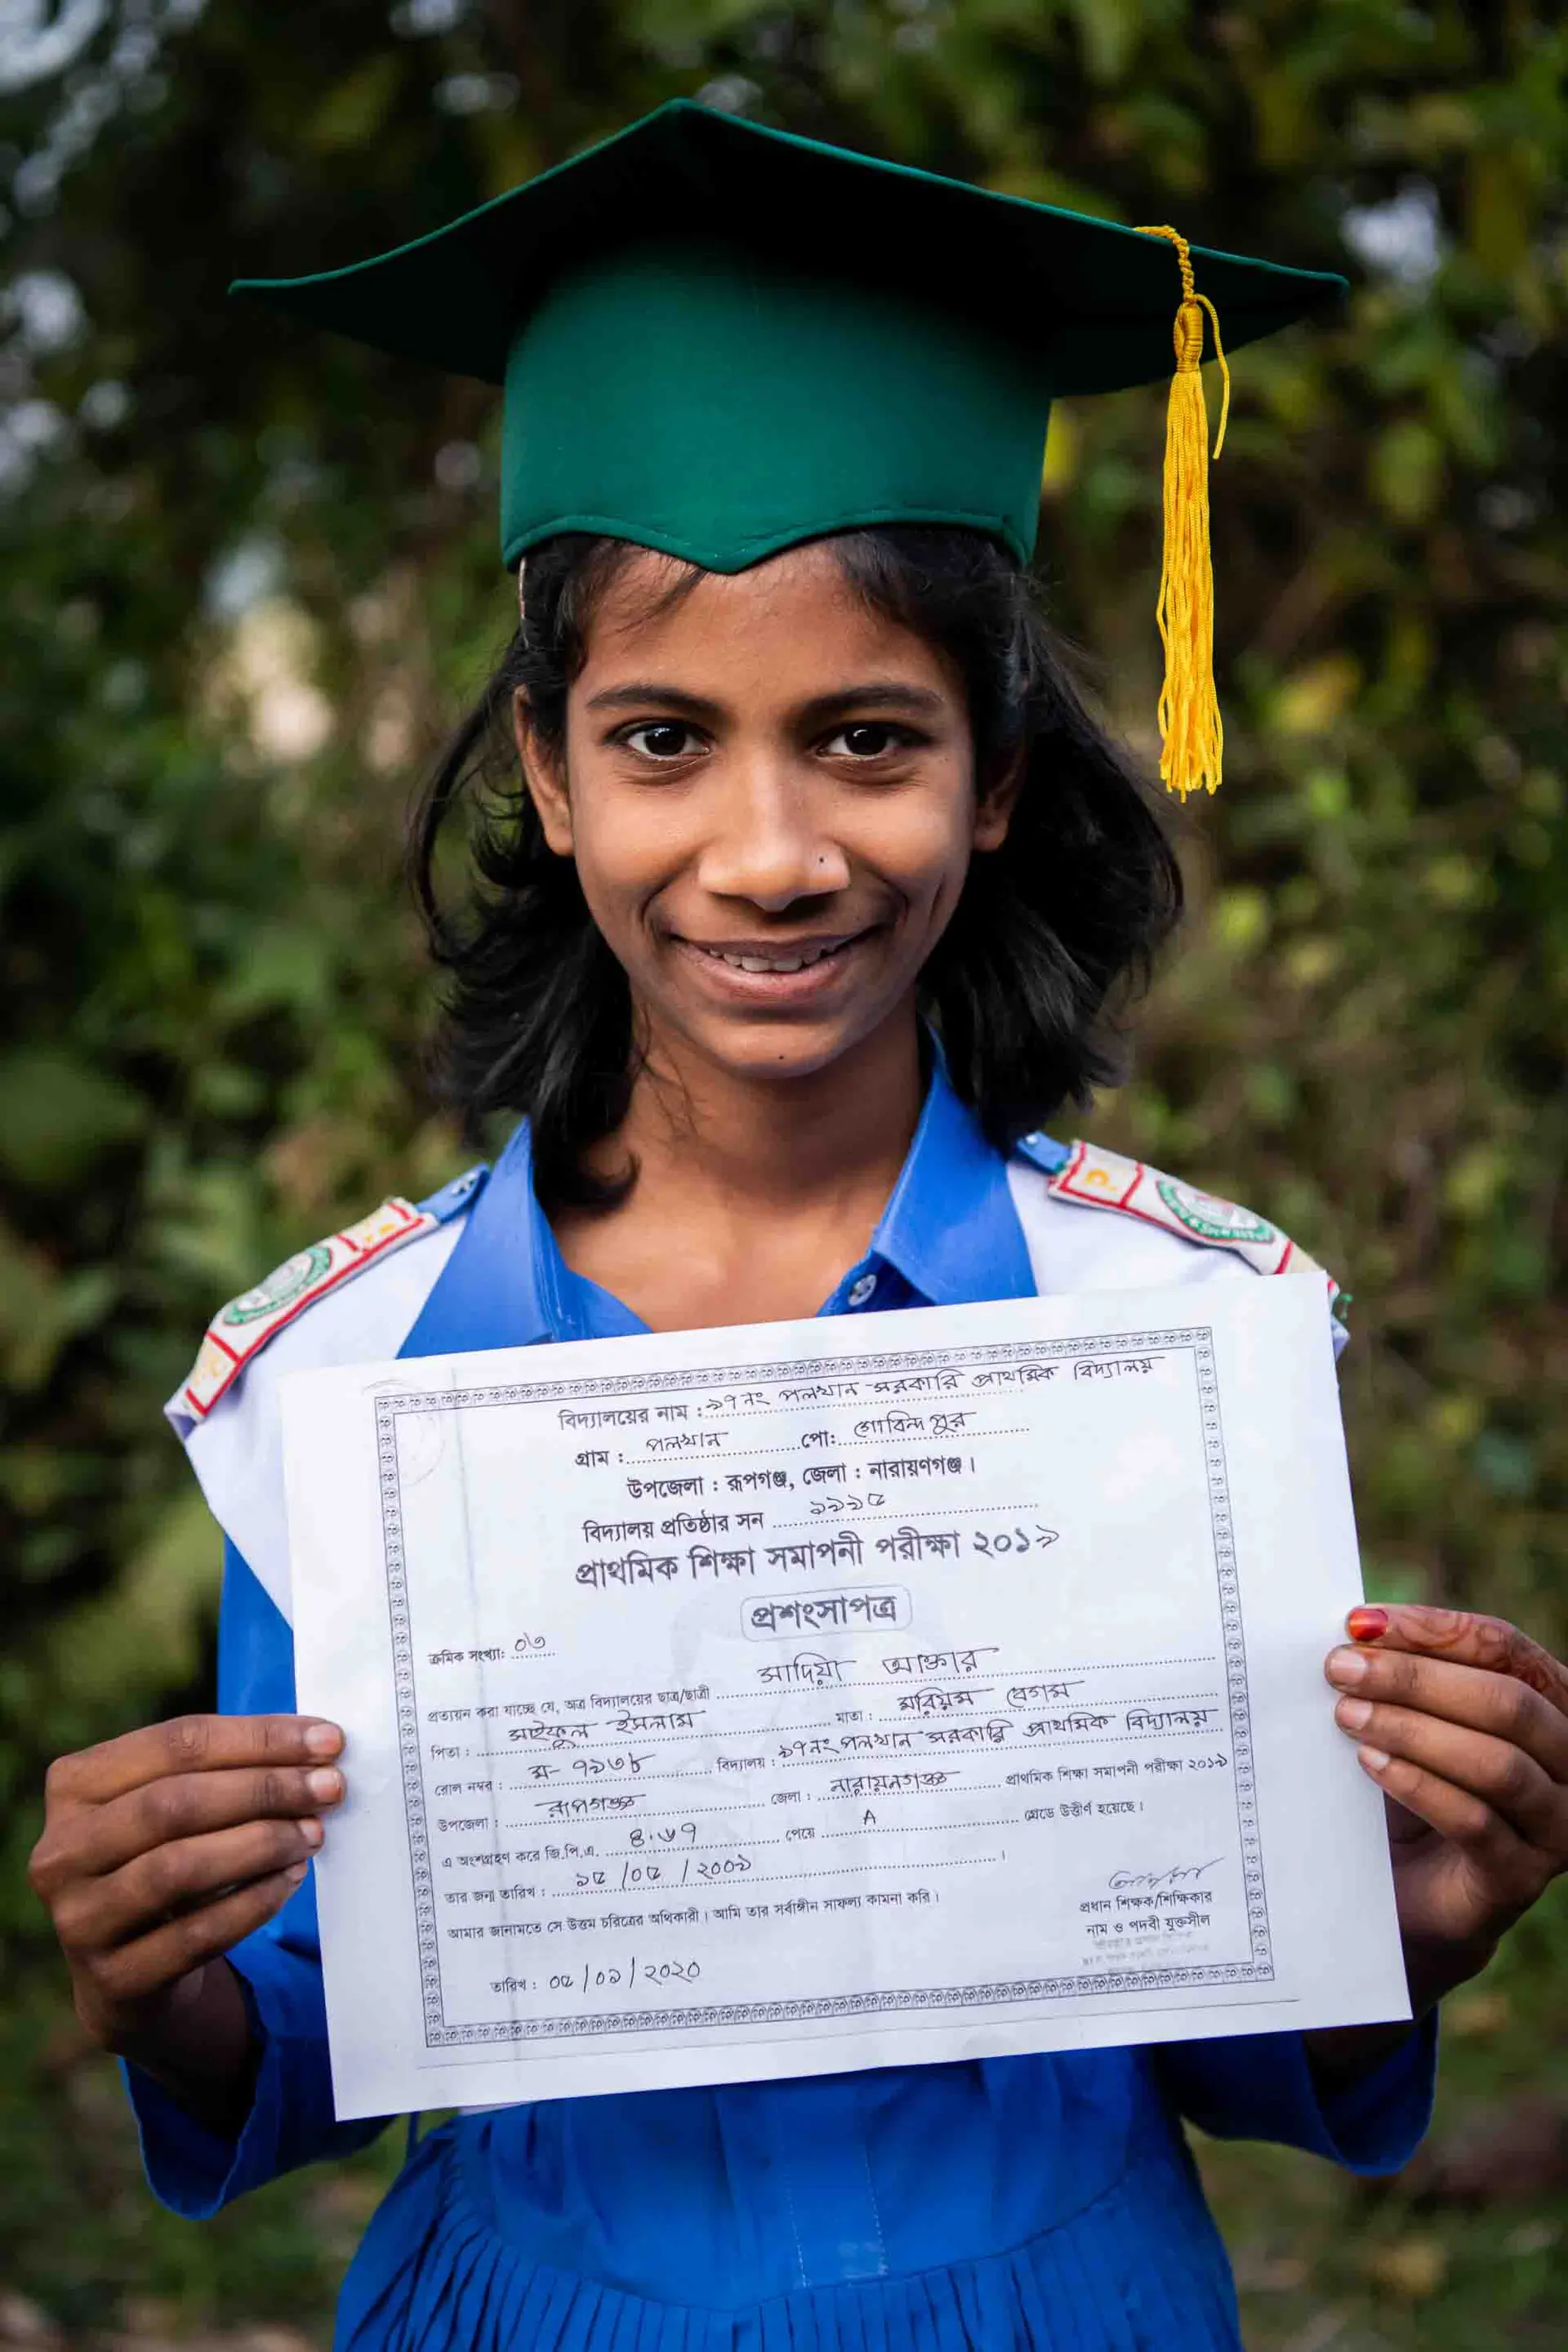 বিদ্যালয়ের নাম : ১৭নং পলখান সরকারি প্রাথমিক বিদ্যালয়
গ্রাম : পলখান পো: গোবিন্দপুর
উপজেলা : রূপগঞ্জ, জেলা : নারায়ণগঞ্জ।
বিদ্যালয় প্রতিষ্ঠার সন ১৯৯৫
প্রাথমিক শিক্ষা সমাপনী পরীক্ষা ২০১৯
প্রশংসাপত্র
ক্রমিক সংখ্যা: ০৩
প্রত্যয়ন করা যাচ্ছে যে, অত্র বিদ্যালয়ের ছাত্র/ছাত্রী সাদিয়া আক্তার
পিতা : সাইফুল ইসলাম মাতা : মরিয়ম বেগম
রোল নম্বর : ম- ৭৯৩৮ বিদ্যালয় : ১৭নং পলখান সরকারি প্রাথমিক বিদ্যালয়
উপজেলা : রূপগঞ্জ জেলা : নারায়নগঞ্জ প্রাথমিক শিক্ষা সমাপনী পরীক্ষা ২০১৯
এ অংশগ্রহণ করে জি.পি.এ. ৪.৬৭ পেয়ে A গ্রেডে উত্তীর্ণ হয়েছে।
তার জন্ম তারিখ : ১৫/০৫/২০০৯।
আমার জানামতে সে উত্তম চরিত্রের অধিকারী। আমি তার সর্বাঙ্গীন সাফল্য কামনা করি।
প্রধান শিক্ষক/শিক্ষিকার
নাম ও পদবী যুক্তসীল
তারিখ : ০৫/০১/২০২০